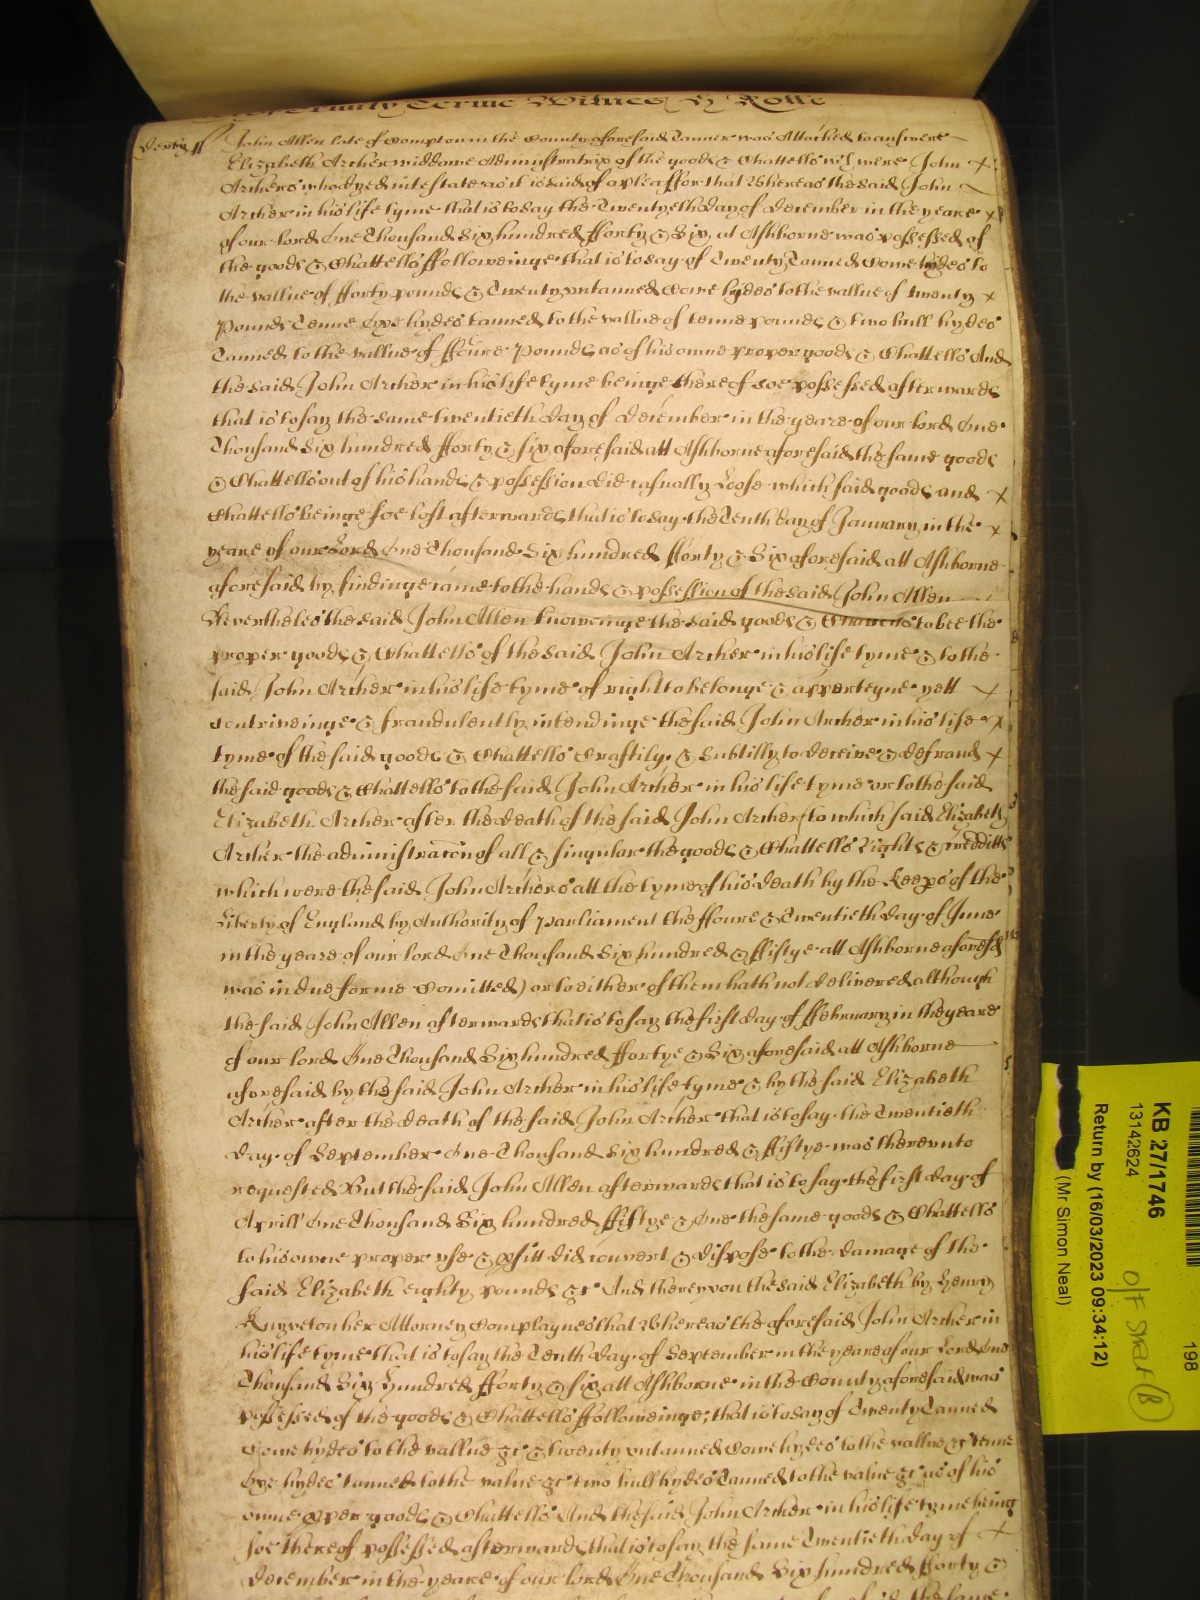 Trinity Terme Witnes H Rolle
Derby ss John Allen late of Compton in the County aforesaid Tanner was Attached to answere
Elizabeth Archer widdowe Administratrix of the goods & Chattells wch were John
Archers who dyed intestate as it is said of a plea ffor that Whereas the said John
Archer in his life tyme that is to say the Twentyeth day of December in the yeare
of our lord One Thousand Six hundred fforty & Six at Ashborne was possessed of
the goods & Chattells ffolloweinge that is to say of Twenty Tanned Cowe hydes to
the vallue of fforty pounds & Twenty untanned Cowe hydes to the vallue of twenty
Pounds Tenne Oxe hydes tanned to the vallue of tenne pounds & two bull hydes
Tanned to the vallue of ffoure Pounds as of his owne proper goods & Chattells And
the said John Archer in his life tyme beinge thereof soe possessed afterwards
that is to say the same twentieth day of December in the yeare of our lord One
Thousand Six hundred fforty & six aforesaid att Ashborne aforesaid the same goods
& Chattells out of his hands & possession did casually Loose which said goods and
Chattells beinge soe lost afterwards that is to say the Tenth day of January in the
yeare of our Lord One Thousand Six hundred fforty & Six aforesaid att Ashborne
aforesaid by findinge came to the hands & possession of the said John Allen
Neverthelesse the said John Allen knoweinge the said goods & Chattells to bee the
proper goods & Chattells of the said John Archer in his life tyme & to the
said John Archer in his life tyme of right to belonge & apperteyne yett
contriveinge & fraudulently intendinge the said John Archer in his life
tyme of the said goods & Chattells Craftily & Subtilly to deceive & defraud
the said goods & Chattells to the said John Archer in his life tyme or to the said
Elizabeth Archer after the death of the said John Archer (to which said Elizabeth
Archer the administracon of all & singular the goods & Chattells Rights & Creditts
which were the said John Archers att the tyme of his death by the Keeps of the
Liberty of England by Authority of Parliament the ffoure & Twentieth day of June
in the yeare of our lord One Thousand Six hundred & ffiftye att Ashborne aforesd
was in due forme Comitted) or to either of them hath not delivered although
the said John Allen afterwards that is to say the first day of ffebruary in the yeare
of our lord One Thousand Six hundred ffortye & Six aforesaid att Ashborne
aforesaid by the said John Archer in his life tyme & by the said Elizabeth
Archer after the death of the said John Archer that is to say the Twentieth
day of September One Thousand Six hundred & ffiftye was thereunto
requested But the said John Allen afterwards that is to say the first day of
Aprill One Thousand Six hundred ffiftye & One the same goods & Chattells
to his owne proper use & pfitt did convert & dispose to the damage of the
said Elizabeth eighty pounds &c And thereupon the said Elizabeth by Henry
Knyveton her Attorney Complaynes that Whereas the aforesaid John Archer in
his life tyme that is to say the Tenth day of September in the yeare of our Lord One
Thousand Six Hundred fforty & six att Ashborne in the County aforesaid was
possessed of the goods & Chattells ffolloweinge; that is to say of Twenty Tanned
Cowe hydes to the vallue &c & twenty untanned Cowe hydes to the vallue &c tenne
Oxe hydes tanned to the value &c two bull hydes Tanned to the value &c as of his
owne pper goods & Chattells And the said John Archer in his life tyme being
soe thereof possessed afterwards that is to say the same Twentieth day of
December in the yeare of our lord One Thousand Six hundred fforty &
198
KB 27/1746
13142624
O/F
Return by (16/03/2023 09:34:12)
(Mr Simon Neal)